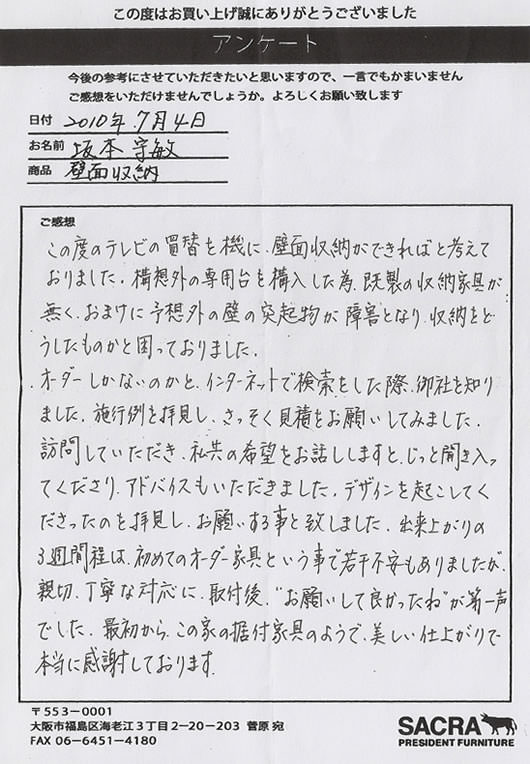 この度はお買い上げ誠にありがとうございました
アンケート
今後の参考にさせていただきたいと思いますので、一言でもかまいません
ご感想をいただけませんでしょうか。よろしくお願い致します
日付 2010年7月4日
お名前 坂本 宇敏
商品 壁面収納
ご感想
この度のテレビの買替を機に、壁面収納ができればと考えて
おりました。構想外の専用台を購入した為、既製の収納家具が
無く、おまけに予想外の壁の突起物が障害となり、収納をど
うしたものかと困っておりました。
オーダーしかないのかと、インターネットで検索をした際、御社を知り
ました。施行例を拝見し、さっそく見積をお願いしてみました。
訪問していただき、私共の希望をお話ししますと、じっと聞き入っ
てくださり、アドバイスもいただきました。デザインを起こしてく
ださったのを拝見し、お願いする事と致しました。出来上がりの
3週間程は、初めてのオーダー家具という事で若干不安もありましたが、
親切、丁寧な対応に、取付後、"お願いして良かったね"が第一声
でした。最初から、この家の据付家具のようで、美しい仕上がりで
本当に感謝しております。
〒553-0001
大阪市福島区海老江3丁目2-20-203 菅原 宛
FAX 06-6451-4180
SACRA
PRESIDENT FURNITURE